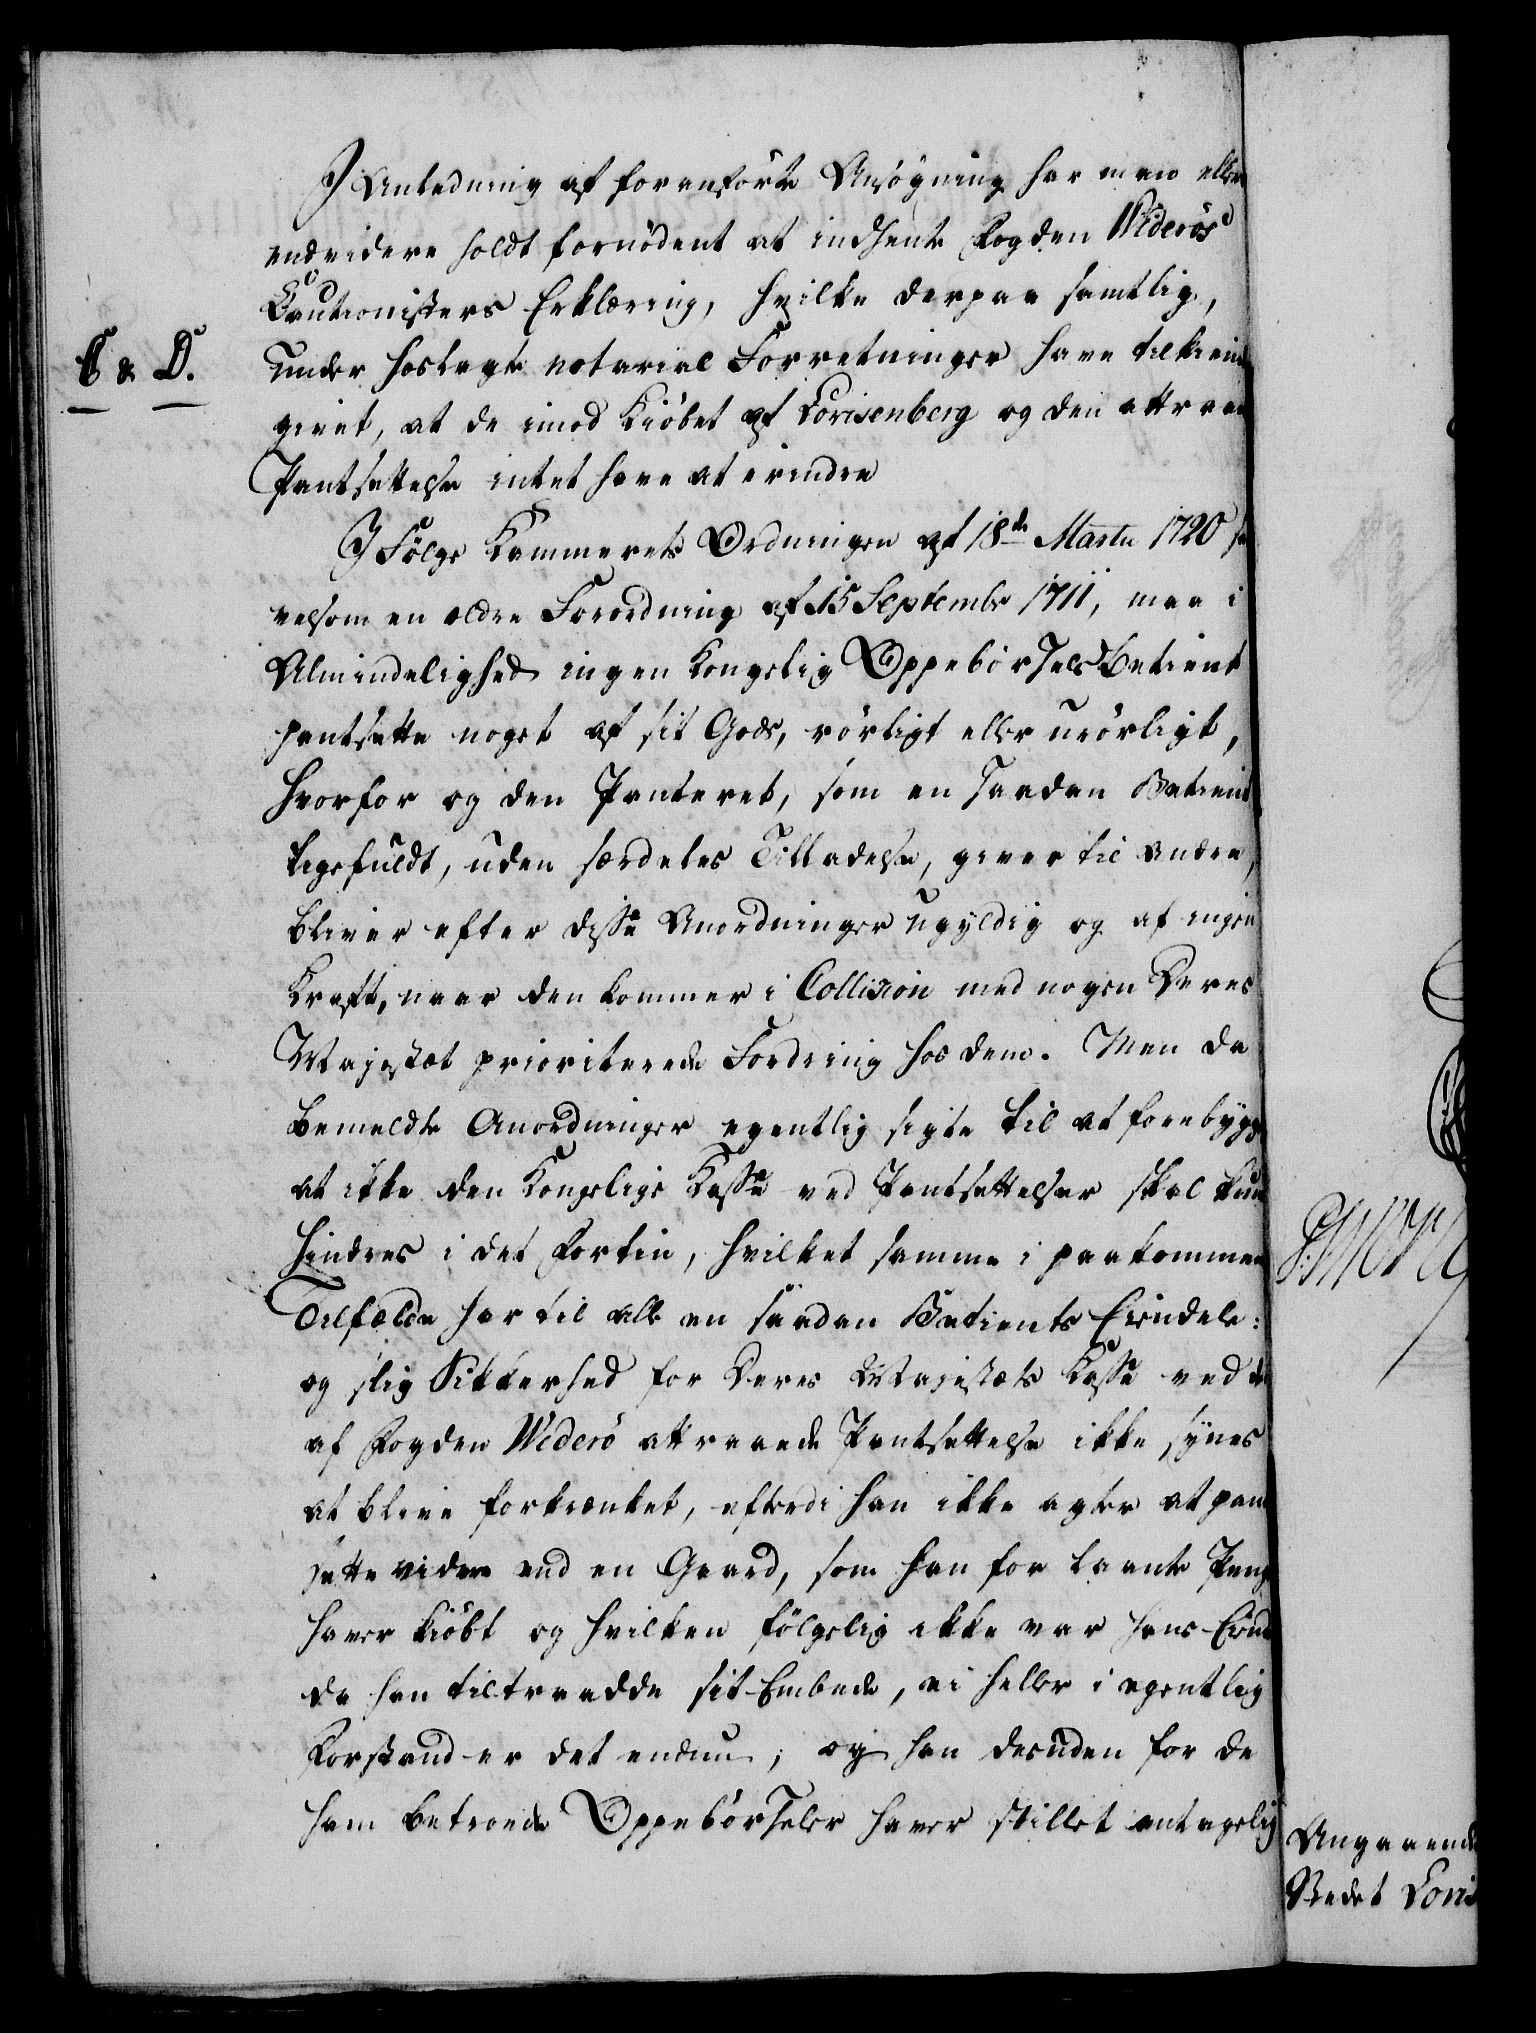 I Anledning af foranførte Ansøgning har man aller
endvidere holdt fornødent at indhente Fogden Widerøs
Cautionisters Erklæring, hvilke derpaa samtlig,
C & D.
under hoslagte notarial Forretninger have tilkiende
givet, at de imod Kiøbet af Lorisenberg og den attraaede
Pantsættelse intet have at erindre
I Følge Kammerets Ordningen af 18de Martii 1720 saa
velsom en ældre Forordning af 15 Septembr 1711, maa i
Almindelighed ingen Kongelig Oppebørsels Betient
pantsætte noget af sit Gods, rørligt eller urørligt,
hvorfor og den Panteret, som en saadan Betient
ligefuldt, uden særdeles Tilladelse, giver til andre,
bliver efter disse Anordninger ugyldig og af ingen
Kraft, naar den kommer i Collision med nogen Deres
Majestæt prioriterede Fordring hos dem. Men da
bemeldte Anordninger egentlig sigte til at forebygge
at ikke den Kongelige Kasse ved Pantsættelser skal kunne
hindres i det Fortrin, hvilket samme i paakommende
Tilfælde har til alle en saadan Betients Eiendele:
og slig Sikkerhed for Deres Majestæts Kasse ved den
af Fogden Widerø attraaede Pantsættelse ikke synes
at blive forkrænket, efterdi han ikke agter at pant
sætte videre end en Gaard, som han for laante Penge
haver kiøbt og hvilken følgelig ikke var hans Eiendom
da han tiltraadde sit Embede, ei heller i egentlig
Forstand er det endnu; og han desuden for de
ham betroede Oppebørseler haver stillet antagelig
Angaaende
Stedet Loris